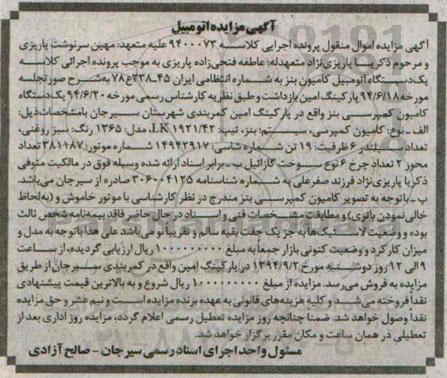 آگهی مزایده اتومبیل
آگهی مزایده اموال منقول پرونده اجرایی کلاسه ۹۴۰۰۰۷۳ علیه متعهد: مهین سرنوشت پاریزی
و مرحوم ذکریا پاریزی‌نژاد متعهدله: عاطفه فتحی‌زاده پاریزی به موجب پرونده اجرائی کلاسه
یک‌دستگاه اتومبیل کامیون بنز به شماره انتظامی ایران ۴۵-۲۳۸ع۷۸ به‌شرح صورتجلسه
مورخه ۹۴/۶/۱۸ پارکینگ امین بازداشت و طبق نظریه کارشناس رسمی مورخه ۹۴/۶/۲۰ یک‌دستگاه
کامیون کمپرسی بنز واقع در پارکینگ امین کمربندی شهرستان سیرجان بامشخصات ذیل:
الف-نوع: کامیون کمپرسی، سیستم: بنز، تیپ: LK.۱۹۲۱/۴۲، مدل: ۱۳۶۵ رنگ: سبز روغنی،
تعداد سیلندر ۶ ظرفیت: ۱۹ تن شماره شاسی: ۱۴۹۴۲۹۱۷ شماره موتور: ۳۸۱۱۸۷ تعداد
محور ۲ تعداد چرخ ۶ نوع سوخت گازائیل ب-برابر اسناد ارائه شده وسیله فوق در مالکیت متوفی
ذکریا پاریزی‌نژاد فرزند صفرعلی به شماره شناسنامه ۳۰۶۰۰۴۱۲۵ صادره از سیرجان می‌باشد.
پ-باتوجه به تصویر کامیون کمپرسی بنز مندرج در نظر کارشناسی با موتور خاموش و (به‌لحاظ
خالی نمودن باتری) و مطابقت مشخصات فنی و اسناد در حال حاضر فاقد بیمه‌نامه شخص ثالث
بوده و وضعیت لاستیک‌ها به جز یک جفت بقیه سالم و تقریباً نو می‌باشد علی هذا باتوجه به مدل و
میزان کارکرد و وضعیت کنونی بازار جمعاً به مبلغ ۱۰۰۰۰۰۰۰۰۰ ریال ارزیابی گردیده، از ساعت
۹ الی ۱۲ روز دوشنبه مورخ ۱۳۹۴/۹/۲ در پارکینگ امین واقع در کمربندی سیرجان از طریق
مزایده به فروش می‌رسد. مزایده از مبلغ ۱۰۰۰۰۰۰۰۰۰ ریال شروع و به بالاترین قیمت پیشنهادی
نقداً فروخته می‌شد و کلیه هزینه‌های قانونی به عهده برنده مزایده است و نیم عشر و حق مزایده
نقداً وصول خواهد شد. ضمناً چنانچه روز مزایده تعطیل رسمی اعلام گردد، مزایده روز اداری بعد از
تعطیلی در همان ساعت و مکان مقرر برگزار خواهد شد.
مسئول واحد اجرای اسناد رسمی سیرجان - صالح آزادی